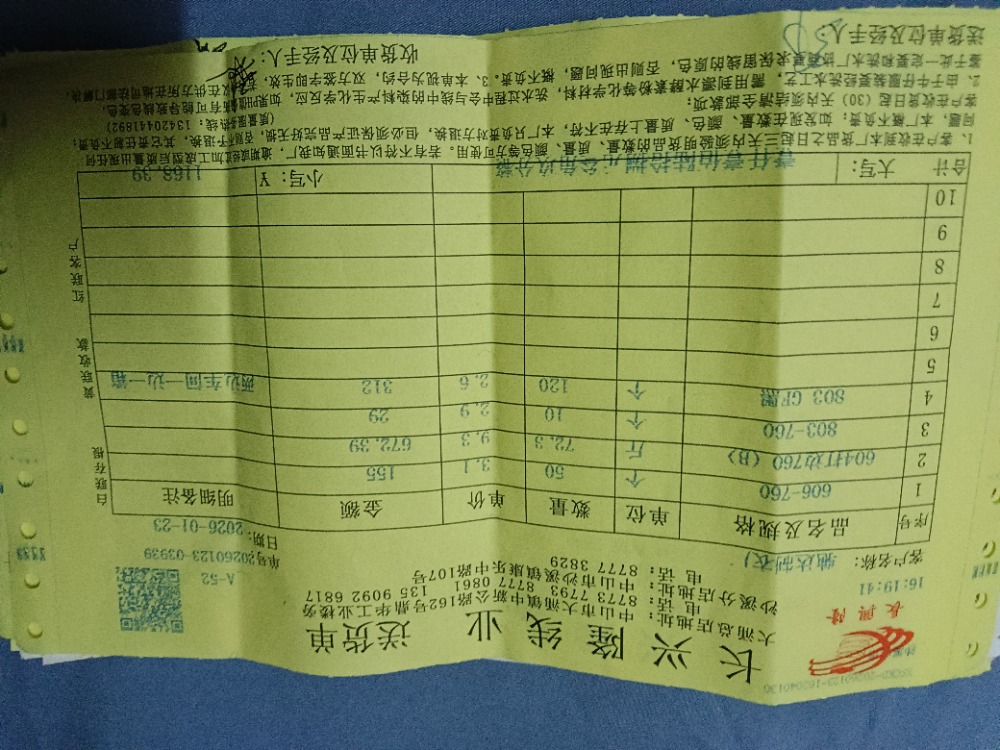 长兴隆线业 送货单
长兴隆
16:19:41
大涌总店地址：中山市大涌镇中新公路162号鼎华工业楼旁
电话：8773 7793 8777 0861 135 9092 6817
沙溪分店地址：中山市沙溪镇康乐中路107号
电话：8777 3829
A-52
单号20260123-03939
日期：2026-01-23
客户名称：驰达制衣)
序号 品名及规格 单位 数量 单价 金额 明细备注
1 606-760 个 50 3.1 155
2 604打边760 (B) 斤 72.3 9.3 672.39
3 803-760 个 10 2.9 29
4 803 GF黑 个 120 2.6 312 两边车间一边一箱
5
6
7
8
9
10
合计 大写：壹仟壹佰陆拾捌元叁角玖分整 小写：￥ 1168.39
白联存根 黄联收款 红联客户
1、客户在收到本厂货品之日起三天内须验明货品的数量、质量、颜色等方可使用。若有不符以书面通知我厂，逾期或经加工成型后质量出现任何
问题，本厂概不负责；如发现在数量、颜色、质量上存在不符，本厂只负责对方退换，但必须保证产品完好无损，否则不予退换，其它责任概不负责；
客户在收货日起（30）天内须结清全部款项；
(质量服务热线：13420441892)
2、由于牛仔服装要经洗水工艺，需用到漂水酵素粉等化学材料，洗水过程中会与线中的染料产生化学反应，
客于此一定要和洗水厂协商要求保留线的原色，否则出现问题，概不负责。3、本单视为合约，双方签字即生效，
送货单位及经手人：
收货单位及经手人：